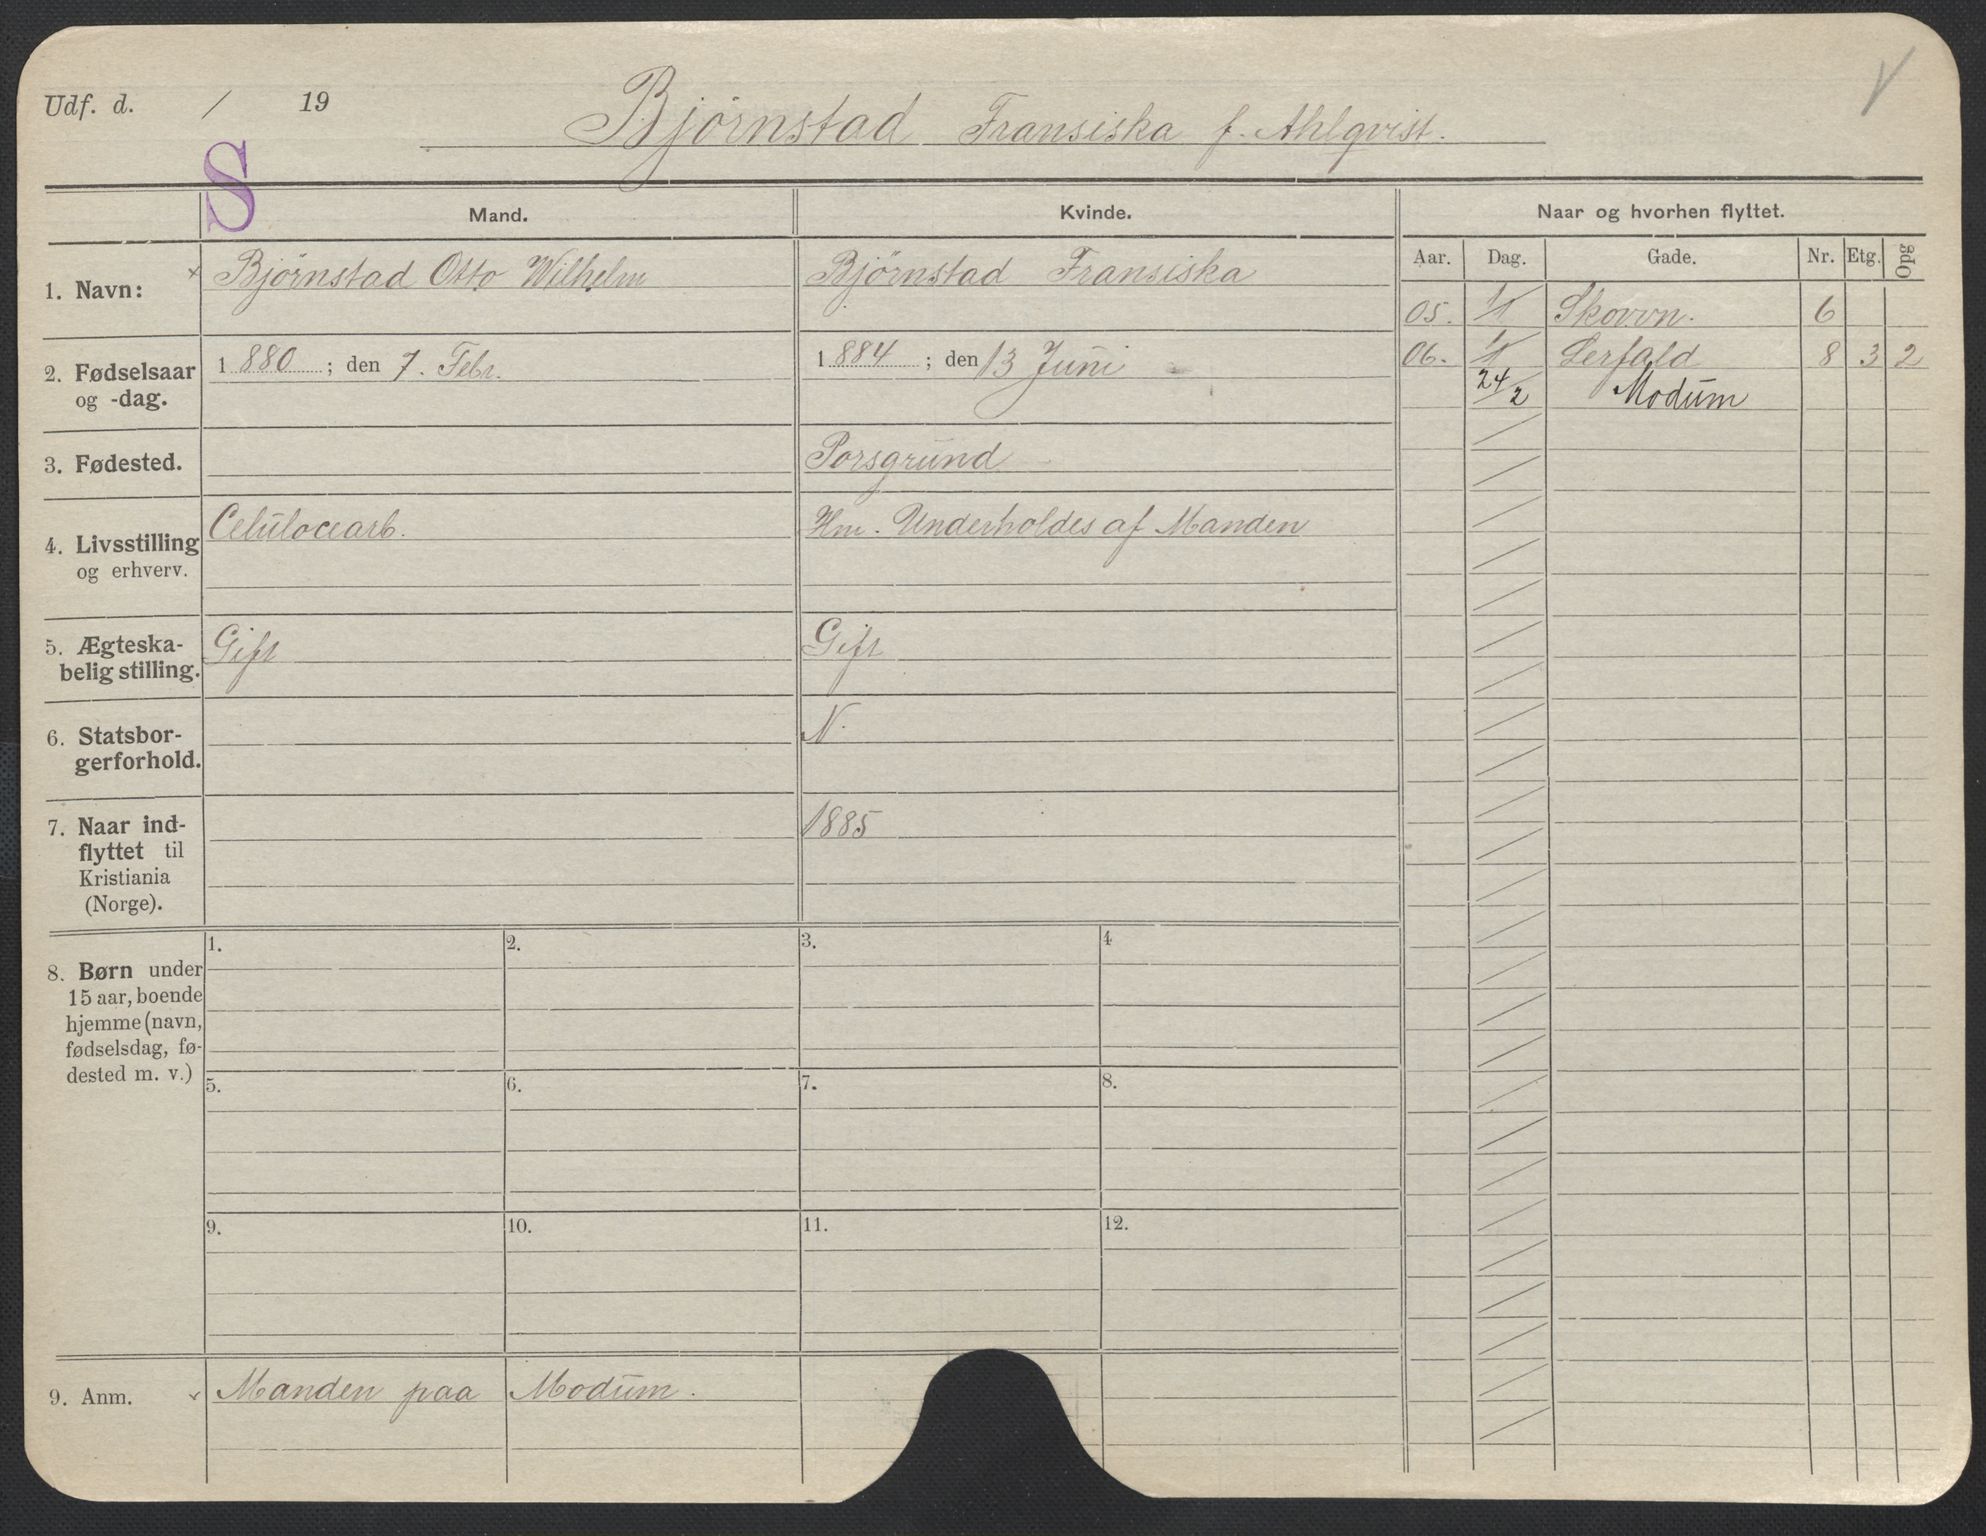 Udf. d. / 19
Bjørnstad Fransiska f. Ahlqvist.
S
Mand.
Kvinde.
Naar og hvorhen flyttet.
Aar. Dag. Gade. Nr. Etg. Opg
1. Navn:
× Bjørnstad Otto Wilhelm
Bjørnstad Fransiska
05. 1/1 Skovvn. 6
06. 1/1 Lerfald 8 3 2
24/2 Modum
2. Fødselsaar
og -dag.
1880 ; den 7. Febr.
1884 ; den 13 Juni
3. Fødested.
Porsgrund
4. Livsstilling
og erhverv.
Celulocearb.
Hm. Underholdes af Manden
5. Ægteska-
belig stilling.
Gift
Gift
6. Statsbor-
gerforhold.
N.
7. Naar ind-
flyttet til
Kristiania
(Norge).
1885
8. Børn under
15 aar, boende
hjemme (navn,
fødselsdag, fø-
dested m. v.)
1. 2. 3. 4
5. 6. 7. 8.
9. 10. 11. 12.
9. Anm.
Manden paa Modum.